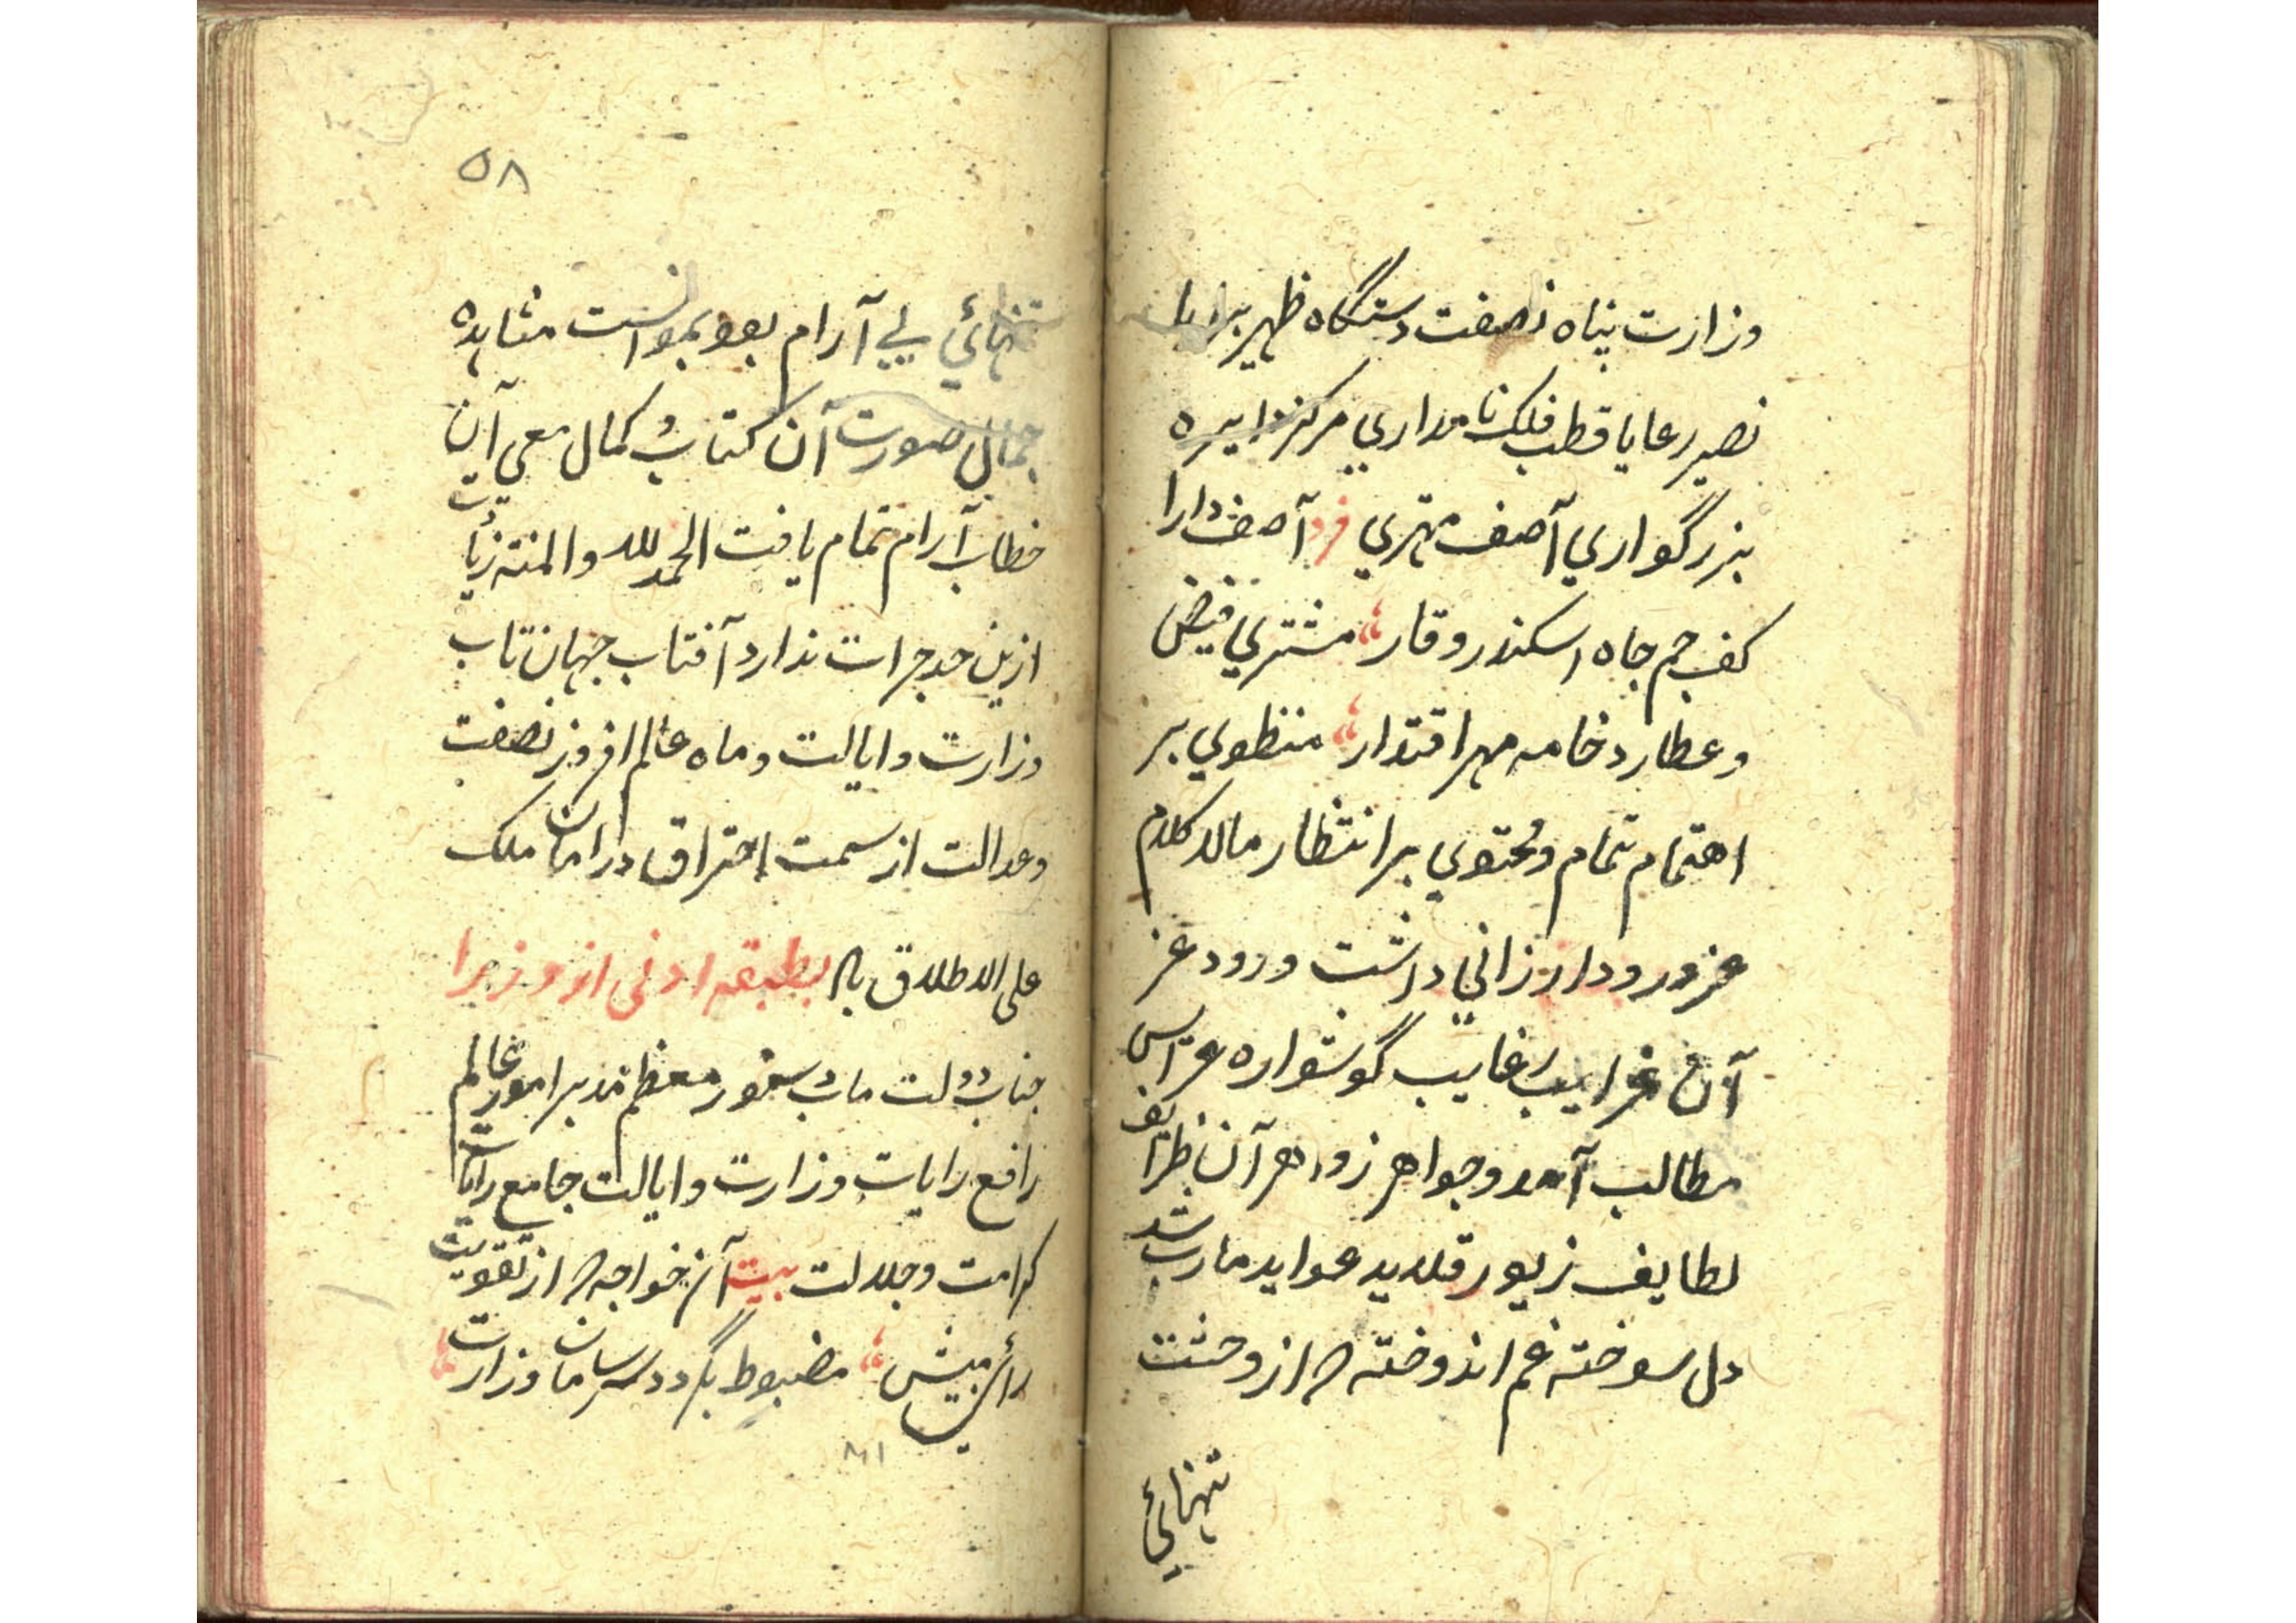 وزارت پناه نصفت دستگاه ظهیر برایا
نصیر رعایا قطب فلک نامداري مرکز دایره
بزرگواري آصف مهتري فرد آصف دارا
کف جم جاه اسکندر وقار مشتري فیض
و عطارد خامه مهر اقتدار منطوي بر
اهتمام تمام و محتوي بر انتظار مالا کلام
عز ورود ارزاني داشت ورود غر
آن غرایب رغایب گوشواره عرایس
مطالب آمد و جواهر زواهر آن ظرایف
لطایف زیور قلاید عواید مارب شد
دل سوخته غم اندوخته که از وحشت
تنهائي
۵۸
تنهائي بي آرام بود بموانست مشاهده
جمال صورت آن کتاب و کمال معني آن
خطاب آرام تمام یافت الحمد لله والمنه زیات
ازین حد جرات ندارد آفتاب جهان تاب
وزارت و ایالت و ماه عالم افروز نصفت
و عدالت از سمت احتراق در امان ملک
علی الاطلاق باد بطبقه ادنی از وزرا
جناب دولت ماب دستور معظم مدبر امور عالم
رافع رایات وزارت و ایالت جامع رایات
کرامت و جلالت بیت آن خواجه که از تقویت
رائ متینش مضبوط بگردد سر و سامان وزارت